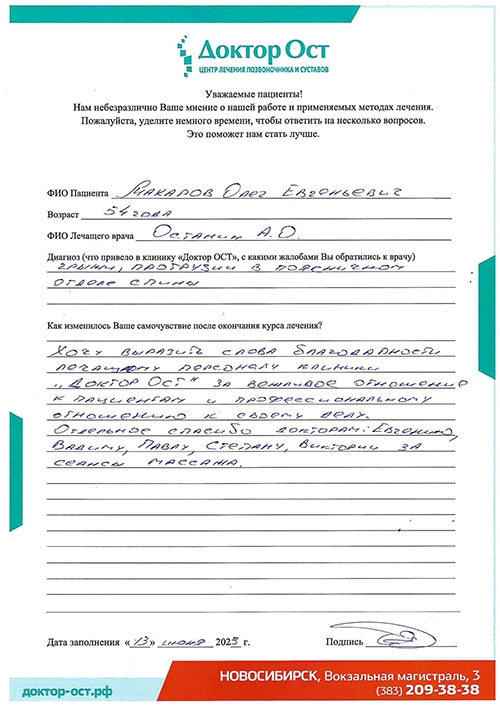 Доктор Ост
ЦЕНТР ЛЕЧЕНИЯ ПОЗВОНОЧНИКА И СУСТАВОВ
Уважаемые пациенты!
Нам небезразлично Ваше мнение о нашей работе и применяемых методах лечения.
Пожалуйста, уделите немного времени, чтобы ответить на несколько вопросов.
Это поможет нам стать лучше.
ФИО Пациента Макаров Олег Евгеньевич
Возраст 54 года
ФИО Лечащего врача Останин А.О.
Диагноз (что привело в клинику «Доктор ОСТ», с какими жалобами Вы обратились к врачу)
грыжи, протрузии в поясничном
отделе спины
Как изменилось Ваше самочувствие после окончания курса лечения?
Хочу выразить слова благодарности
лечащему персоналу клиники
„Доктор Ост" за вежливое отношение
к пациентам и профессиональному
отношению к своему делу.
Отдельное спасибо докторам: Евгению,
Вадиму, Павлу, Степану, Виктории за
сеансы массажа.
Дата заполнения «13» июня 2023 г. Подпись
доктор-ост.рф
НОВОСИБИРСК, Вокзальная магистраль, 3
(383) 209-38-38